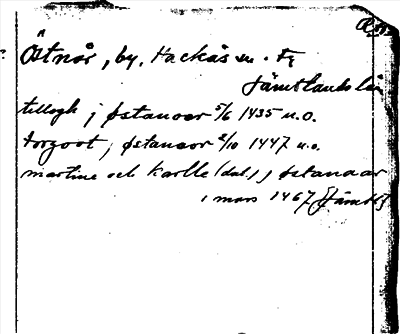 Östnår, by. Hackås sn. Fz
Jämtlands län
tillogh j østanoor 5/6 1435 u.o.
torgoot, j østanoor 2/10 1447 u.o.
martine och karlle (dal.) j østanaar
1 mars 1467